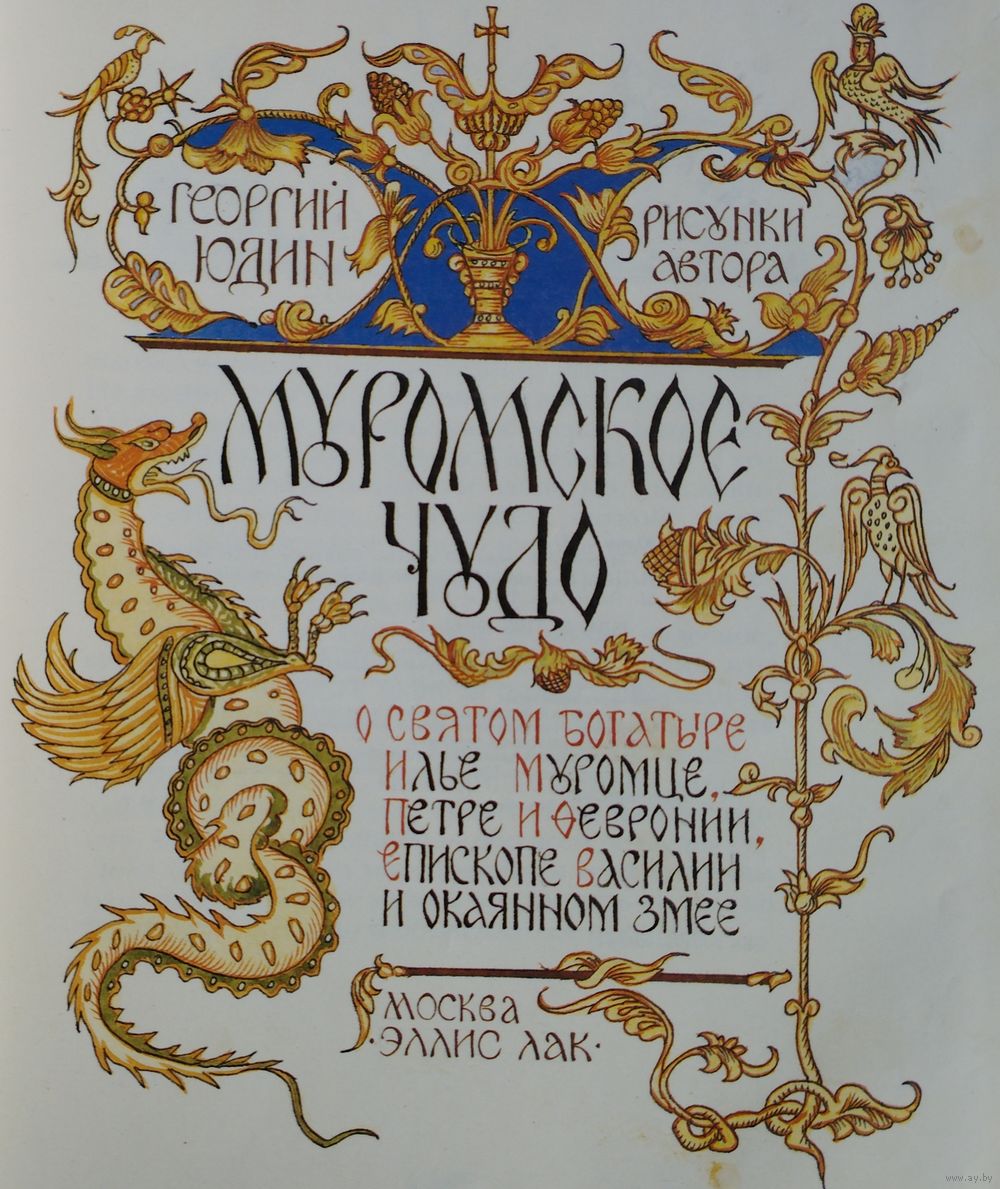 ГЕОРГИЙ
ЮДИН
РИСУНКИ
АВТОРА
МУРОМСКОЕ
ЧУДО
О СВЯТОМ БОГАТЫРЕ
ИЛЬЕ МУРОМЦЕ,
ПЕТРЕ И ѲЕВРОНИИ,
ЕПИСКОПЕ ВАСИЛИИ
И ОКАЯННОМ ЗМЕЕ
МОСКВА
·ЭЛЛИС ЛАК·
www.ay.by